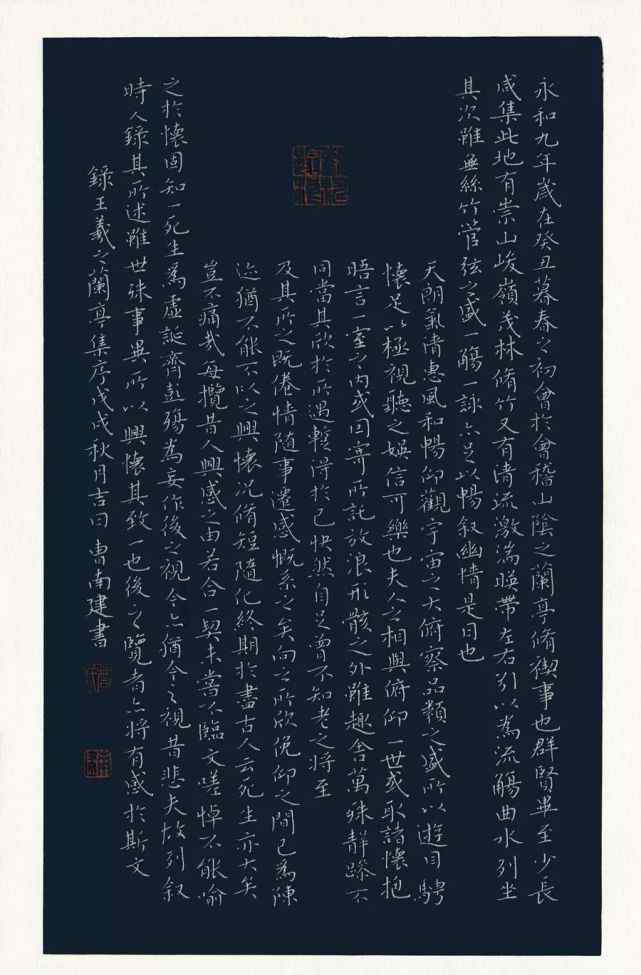 永和九年歲在癸丑暮春之初會於會稽山陰之蘭亭脩禊事也群賢畢至少長
咸集此地有崇山峻嶺茂林脩竹又有清流激湍暎帶左右引以為流觴曲水列坐
其次雖無絲竹管弦之盛一觴一詠亦足以暢叙幽情是日也
天朗氣清惠風和暢仰觀宇宙之大俯察品類之盛所以遊目騁
懷足以極視聽之娛信可樂也夫人之相與俯仰一世或取諸懷抱
晤言一室之內或因寄所託放浪形骸之外雖趣舍萬殊靜躁不
同當其欣於所遇蹔得於己快然自足曾不知老之將至
及其所之既倦情隨事遷感慨系之矣向之所欣俛仰之間已為陳
迹猶不能不以之興懷況脩短隨化終期於盡古人云死生亦大矣
豈不痛哉每攬昔人興感之由若合一契未嘗不臨文嗟悼不能喻
之於懷固知一死生為虛誕齊彭殤為妄作後之視今亦猶今之視昔悲夫故列叙
時人錄其所述雖世殊事異所以興懷其致一也後之覽者亦將有感於斯文
錄王羲之蘭亭集序戊戌秋月吉日 曹南建書